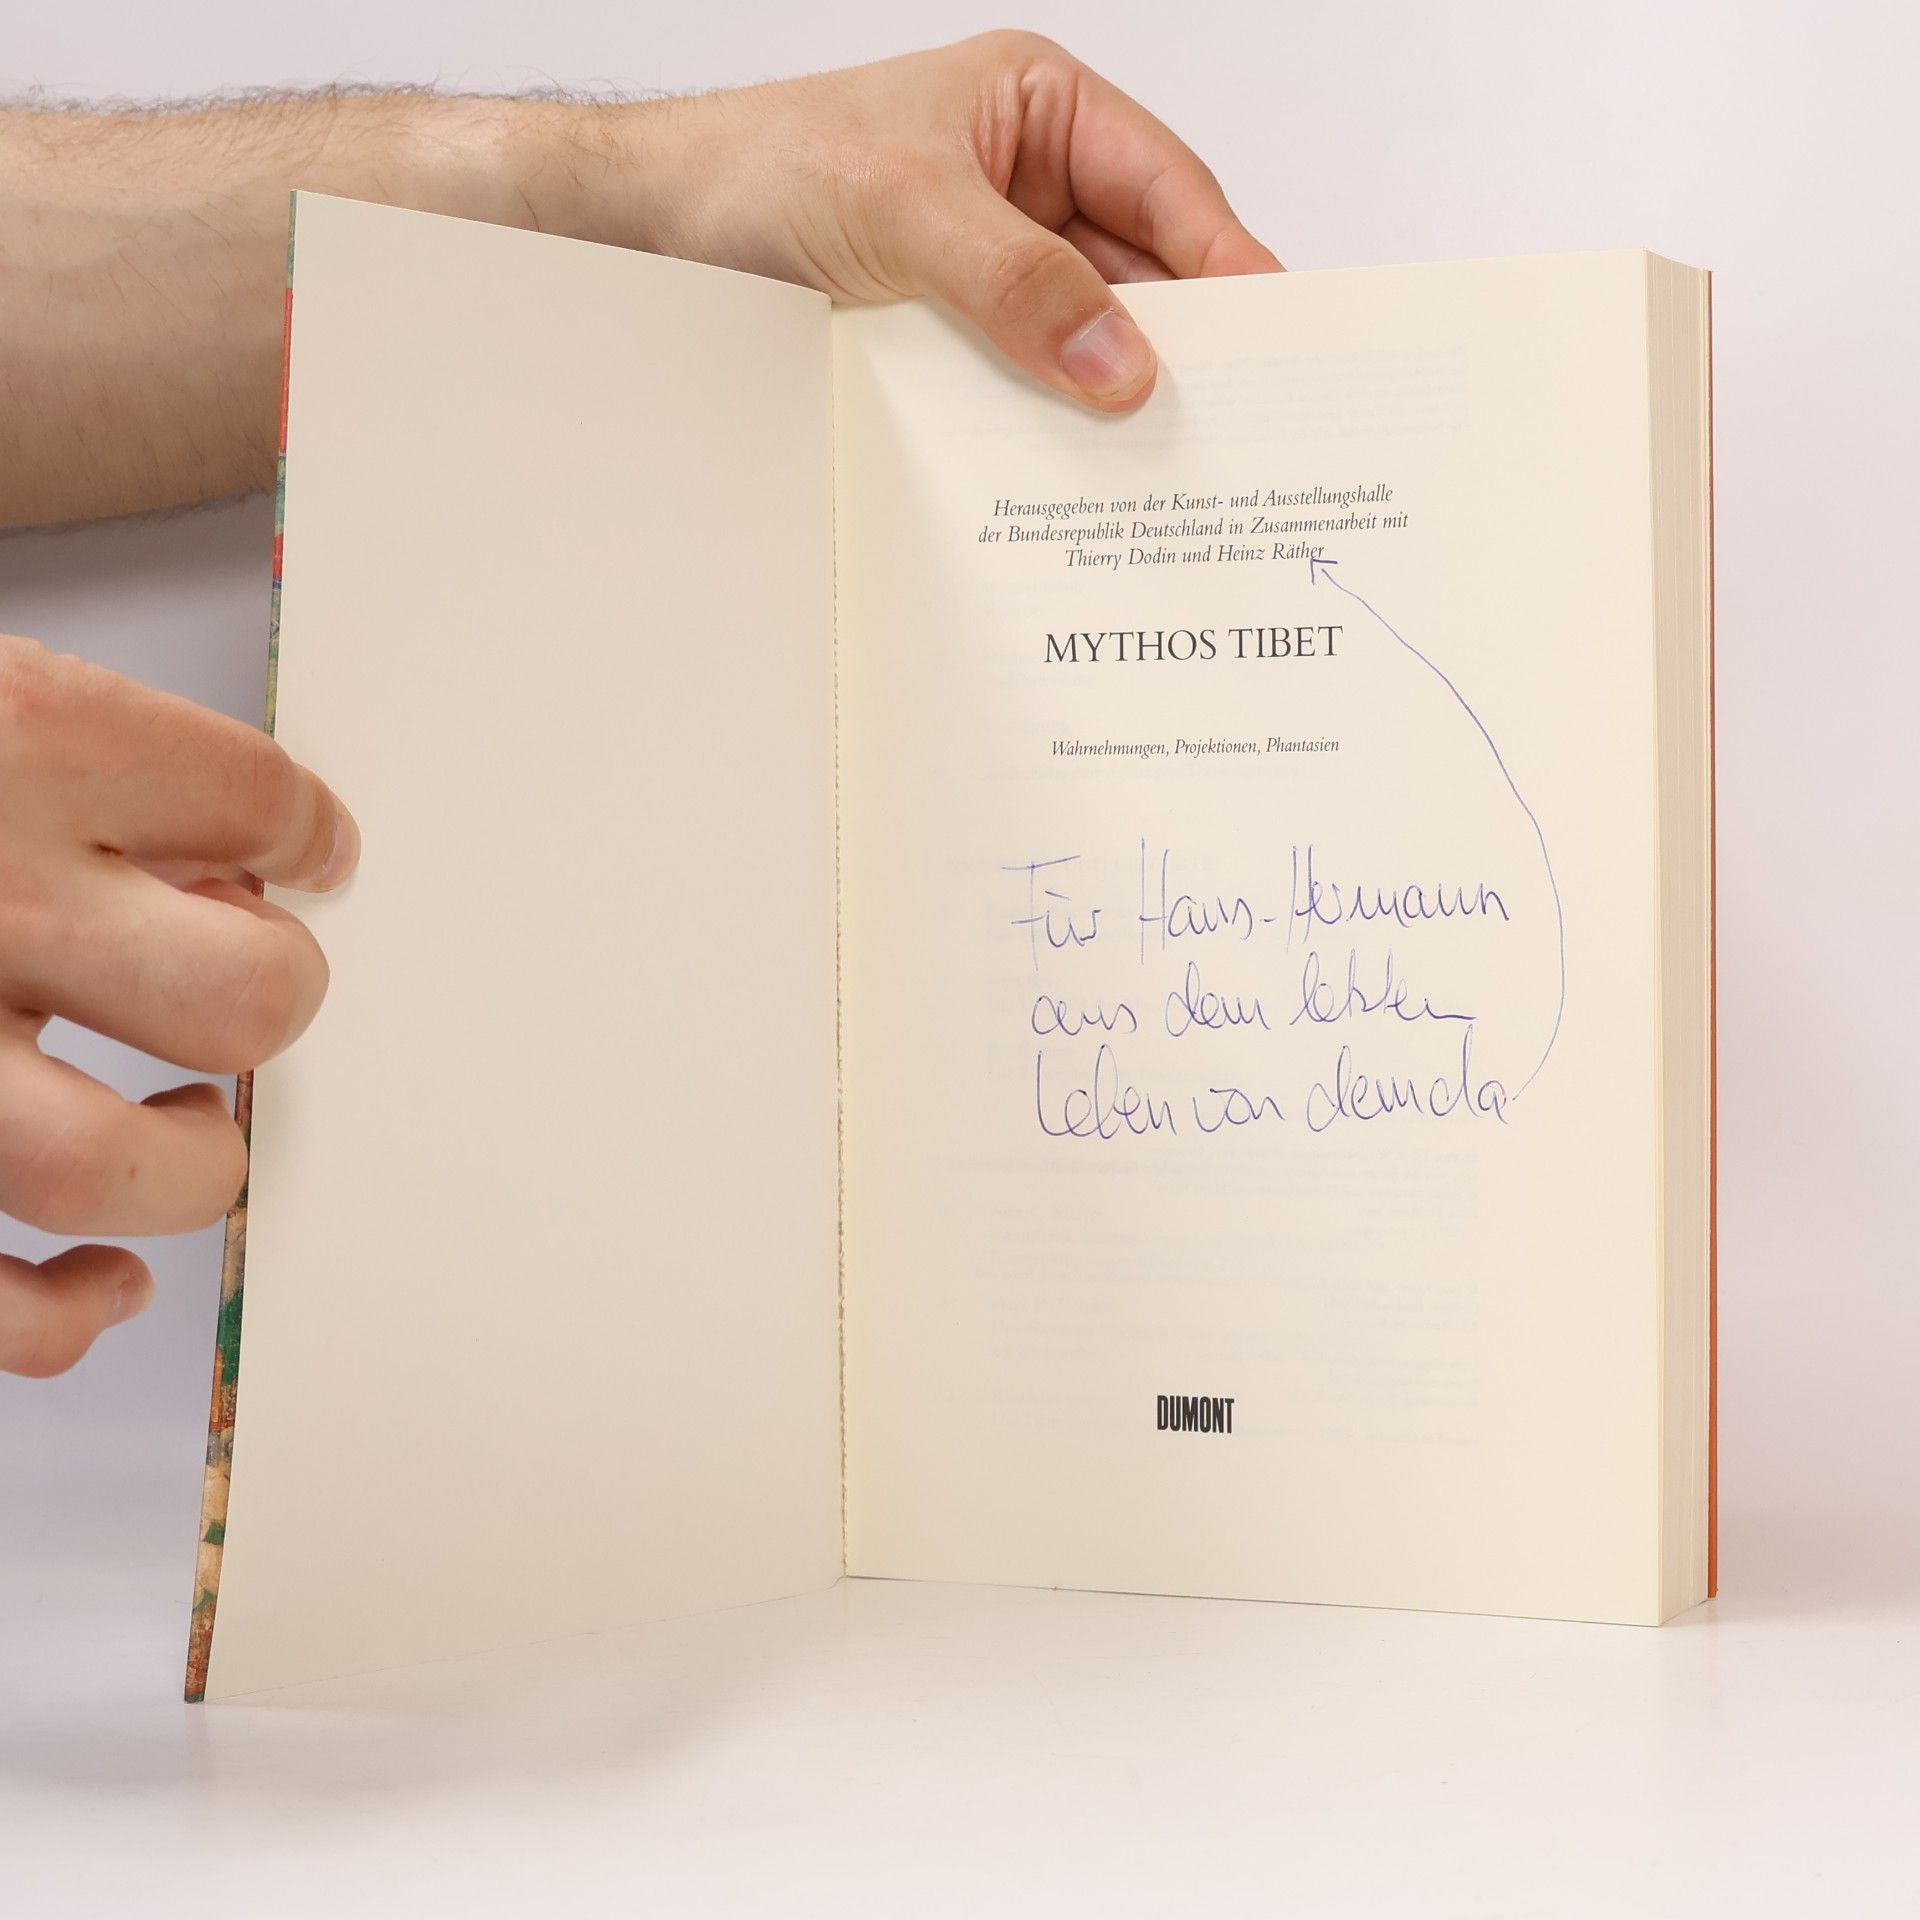 Herausgegeben von der Kunst- und Ausstellungshalle
der Bundesrepublik Deutschland in Zusammenarbeit mit
Thierry Dodin und Heinz Räther
MYTHOS TIBET
Wahrnehmungen, Projektionen, Phantasien
Für Hans-Hermann
aus dem letzten
Leben von dem da
DUMONT